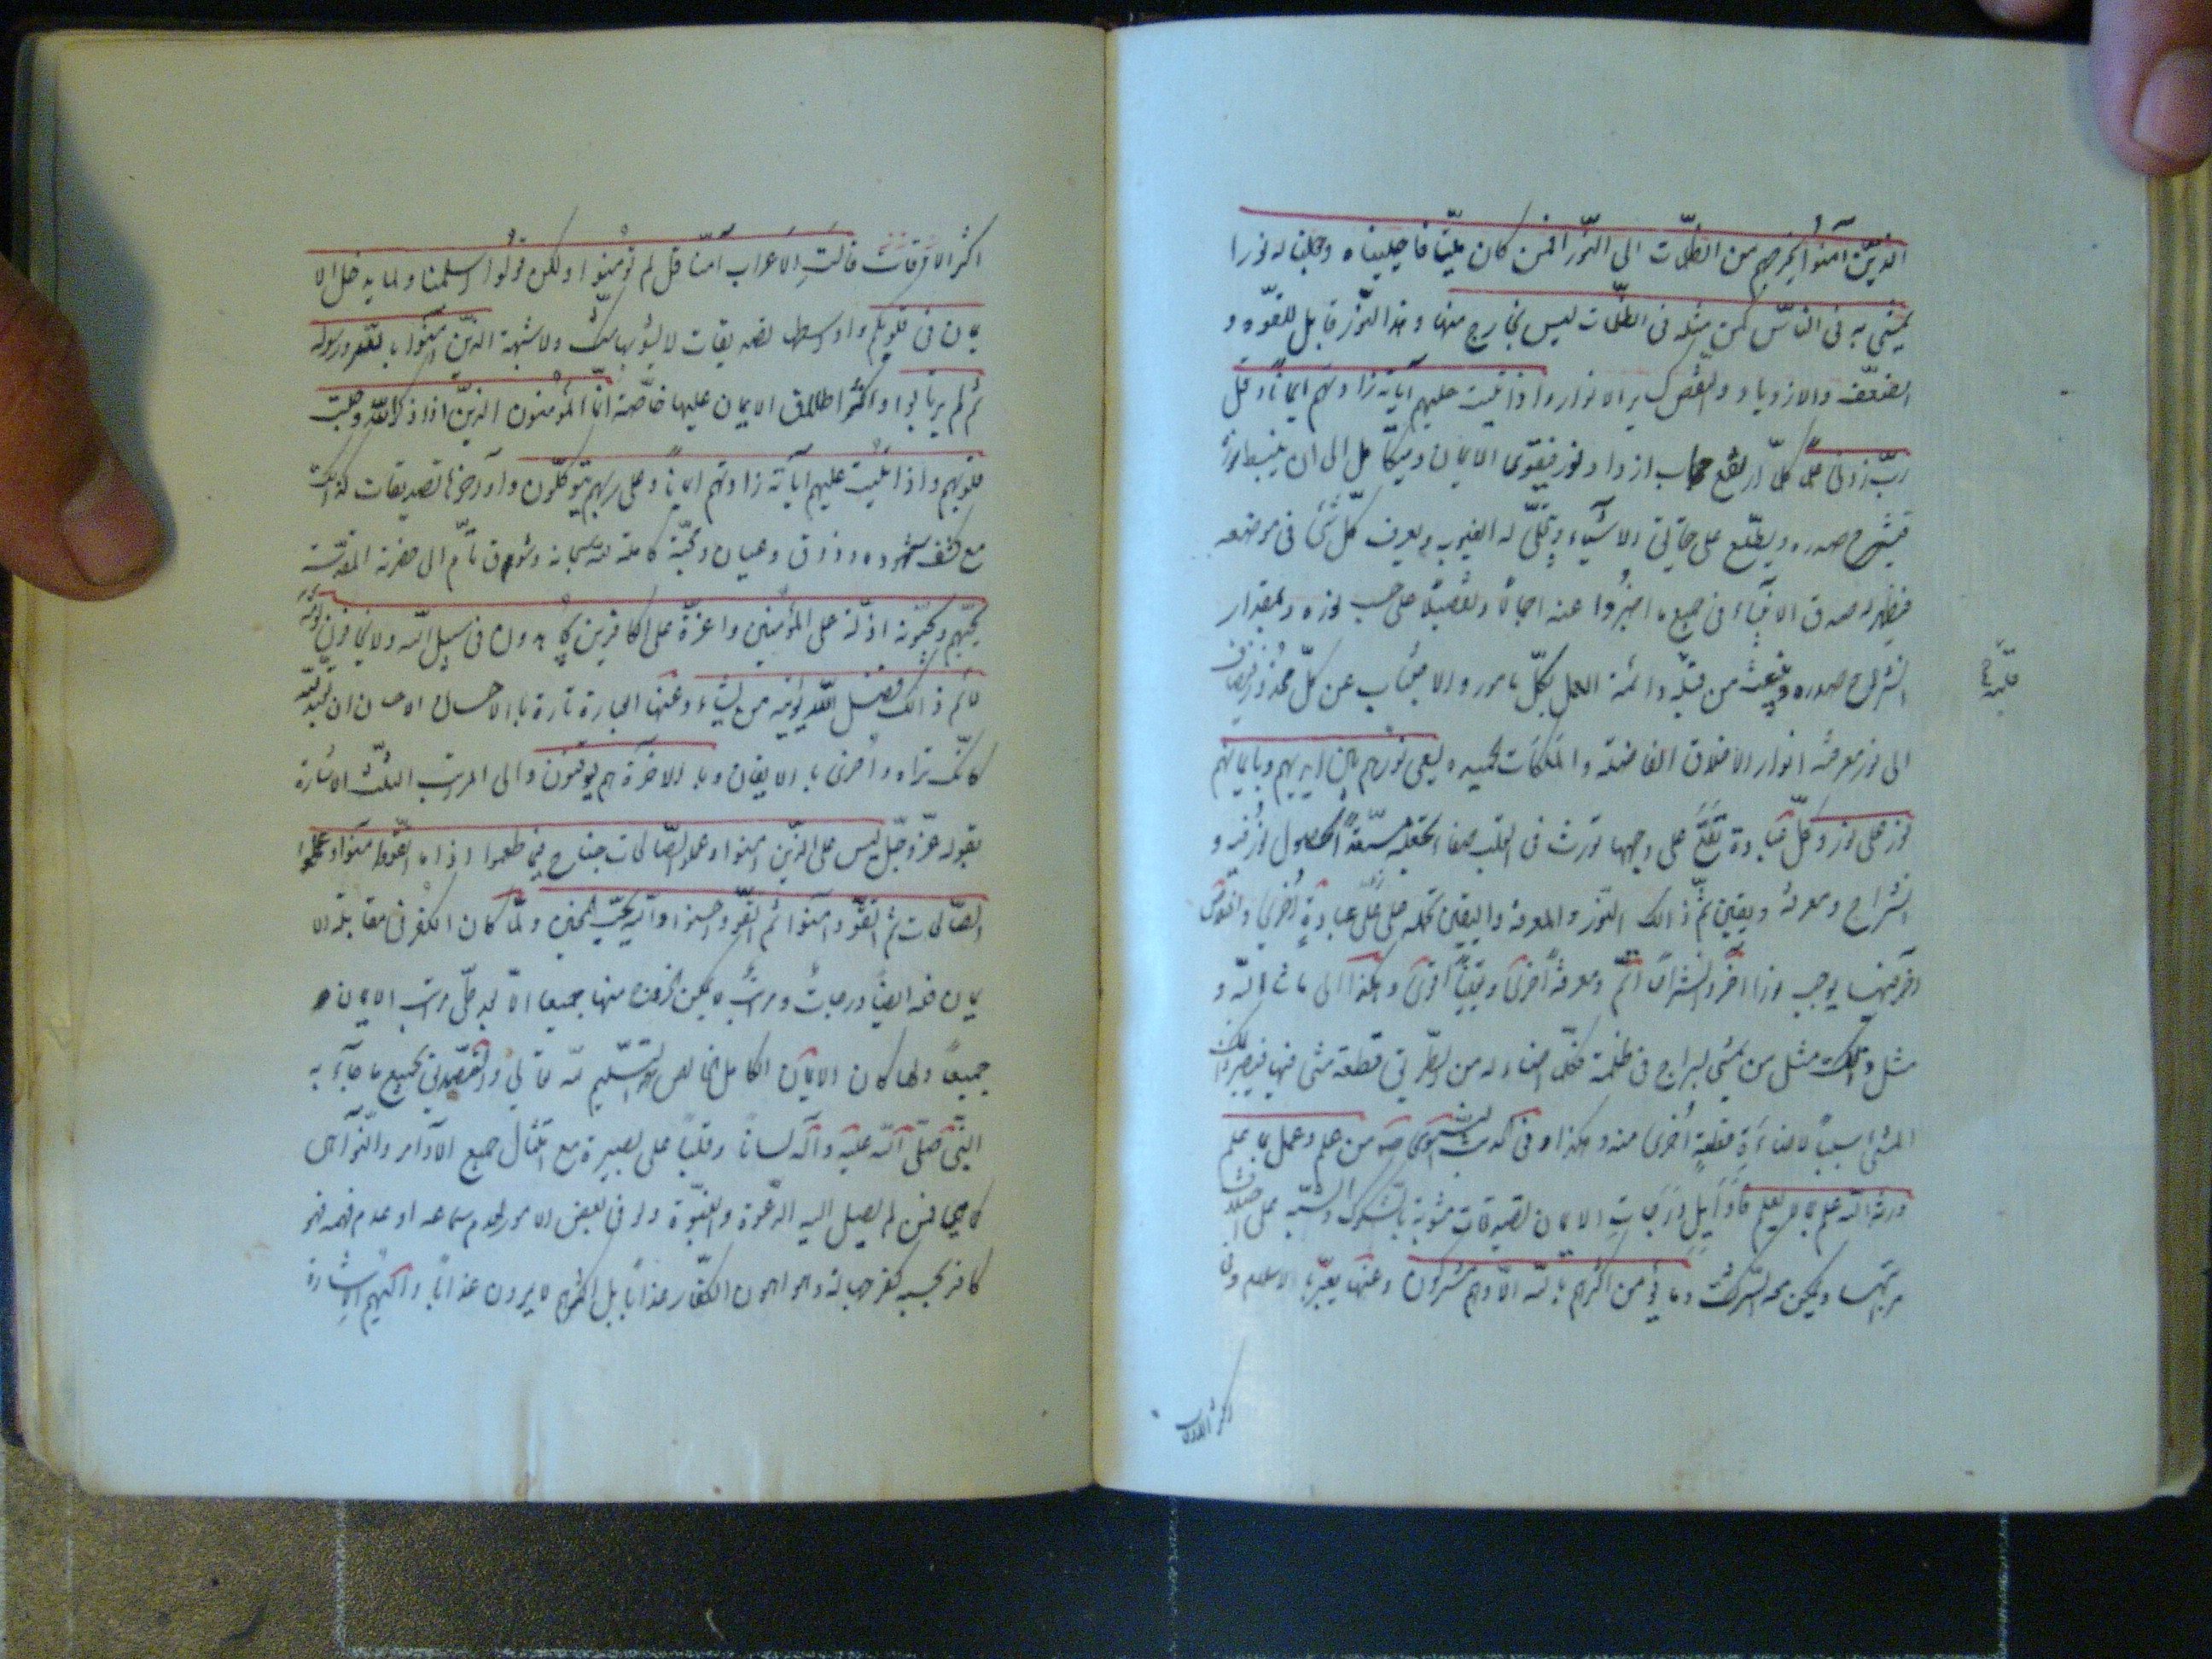 الذين آمنوا يخرجهم من الظلمات الى النور افمن كان ميتا فاحييناه وجعلنا له نورا
يمشي به في الناس كمن مثله في الظلمات ليس بخارج منها وهذا النور قابل للقوة و
الضعف والازدياد والنقص كساير الانوار واذا تليت عليهم آياته زادتهم ايمانا وقل
رب زدني علما كلما ارتفع حجاب ازداد نور فيقوى الايمان ويتكامل الى ان ينبسط نوره
فينشرح صدره ويطلع على حقايق الاشياء وتجلى له الغيوب ويعرف كل شئ في موضعه
فيظهر له صدق الانبياء في جميع ما اخبروا عنه اجمالا وتفصيلا على حسب نوره وبمقدار
انشراح صدره وينبعث من قلبه داعية العمل بكل مامور والاجتناب عن كل محذور فيضاف
الى نور معرفته انوار الاخلاق الفاضلة والملكات الحميدة يسعى نورهم بين ايديهم وبايمانهم
نور على نور وكل عبادة تقع على وجهها تورث في القلب صفاء يجعله مستعدا لحصول نور فيه و
انشراح ومعرفة ويقين ثم ذالك النور والمعرفة واليقين تحمله على عبادة اخرى واخلاص
آخر فيها يوجب نورا آخر وانشراحا اتم ومعرفة اخرى ويقينا اقوى وهكذا الى ما شاء الله و
مثل ذالك مثل من يمشي بسراج في ظلمة فكلما اضاء له من الطريق قطعة مشى فيها فيصير ذالك
المشي سببا لاضاءة قطعة اخرى منه وهكذا وفي الحديث النبوي من علم وعمل بما علم
ورثه الله علم ما لم يعلم فاوايل درجات الايمان تصديقات مشوبة بالشكوك والشبه على اختلاف
مراتبها ويمكن معه الشرك وما يؤمن اكثرهم بالله الا وهم مشركون وعنها يعبر بالاسلام في
اكثر الاوقات
اكثر الاوقات قالت الاعراب آمنا قل لم تؤمنوا ولكن قولوا اسلمنا ولما يدخل الا
يمان في قلوبكم واوسطها تصديقات لا يشوبها شك ولا شبهة الذين آمنوا بالله ورسوله
ثم لم يرتابوا واكثر اطلاق الايمان عليها خاصة انما المؤمنون الذين اذا ذكر الله وجلت
قلوبهم واذا تليت عليهم آياته زادتهم ايمانا وعلى ربهم يتوكلون وآواخرها تصديقات كذالك
مع كشف وشهود وذوق وعيان ومحبة كاملة لله سبحانه وشوق تام الى حضرته المقدسة
يحبهم ويحبونه اذلة على المؤمنين واعزة على الكافرين يجاهدون في سبيل الله ولا يخافون لومة
لائم ذالك فضل الله يؤتيه من يشاء وعنها العبارة تارة بالاحسان الاحسان ان تعبد الله
كانك تراه واخرى بالايقان وبالاخرة هم يوقنون والى المراتب الثلث الاشارة
بقوله عز وجل ليس على الذين امنوا وعملوا الصالحات جناح فيما طعموا اذا ما اتقوا وآمنوا وعملوا
الصالحات ثم اتقوا وامنوا ثم اتقوا واحسنوا والله يحب المحسنين ولما كان الكفر في مقابلة الا
يمان فله ايضا درجات ومراتب
جميعا ولما كان الايمان الكامل الخالص هو التسليم لله تعالى والتصديق بجميع ما جاء به
النبي صلى الله عليه وآله لسانا وقلبا على بصيرة مع امتثال جميع الاوامر والنواهي
كما هي فمن لم يصل اليه الدعوة والنبوة ولو في بعض الامور لعدم سماعه او عدم فهمه فهو
كافر بحسبه كفر جهالة وهو اهون الكفار عذابا بل اكثرهم لا يرون عذابا واليهم الاشارة